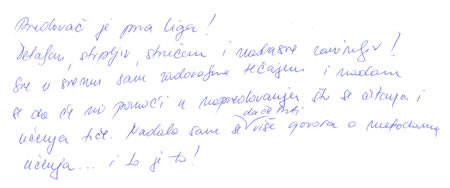 Predavač je prva liga!
Detaljan, strpljiv, stručan i nadasve zanimljiv!
Sve u svemu sam zadovoljna tečajem i nadam
se da će mi pomoći u napredovanju što se čitanja i
učenja tiče. Nadala sam se da će biti više govora o metodama
učenja... i to je to!